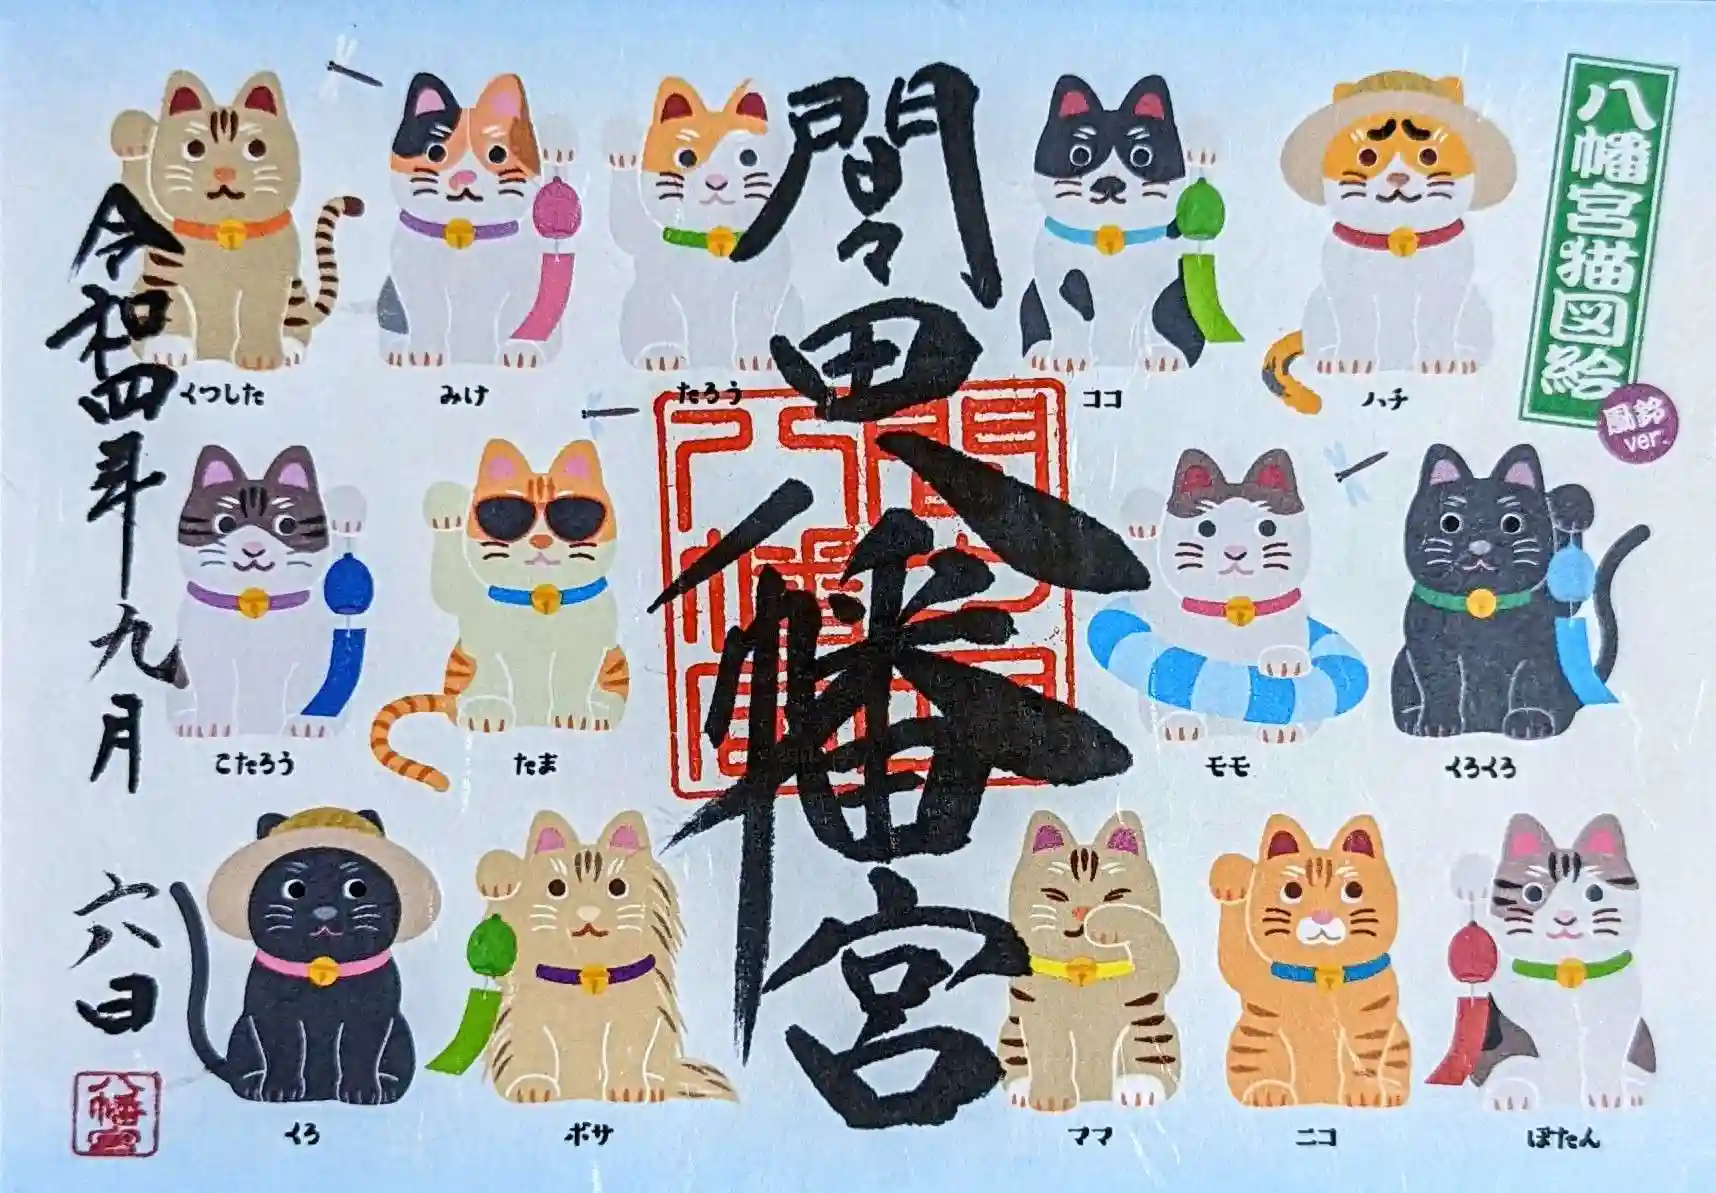 八幡宮猫図絵
風鈴
ver.
間々田八幡宮
令和四年九月
六日
くつした
みけ
たろう
ココ
ハチ
こたろう
たま
モモ
くろくろ
くろ
ボサ
ママ
ニコ
ぼたん
八幡宮